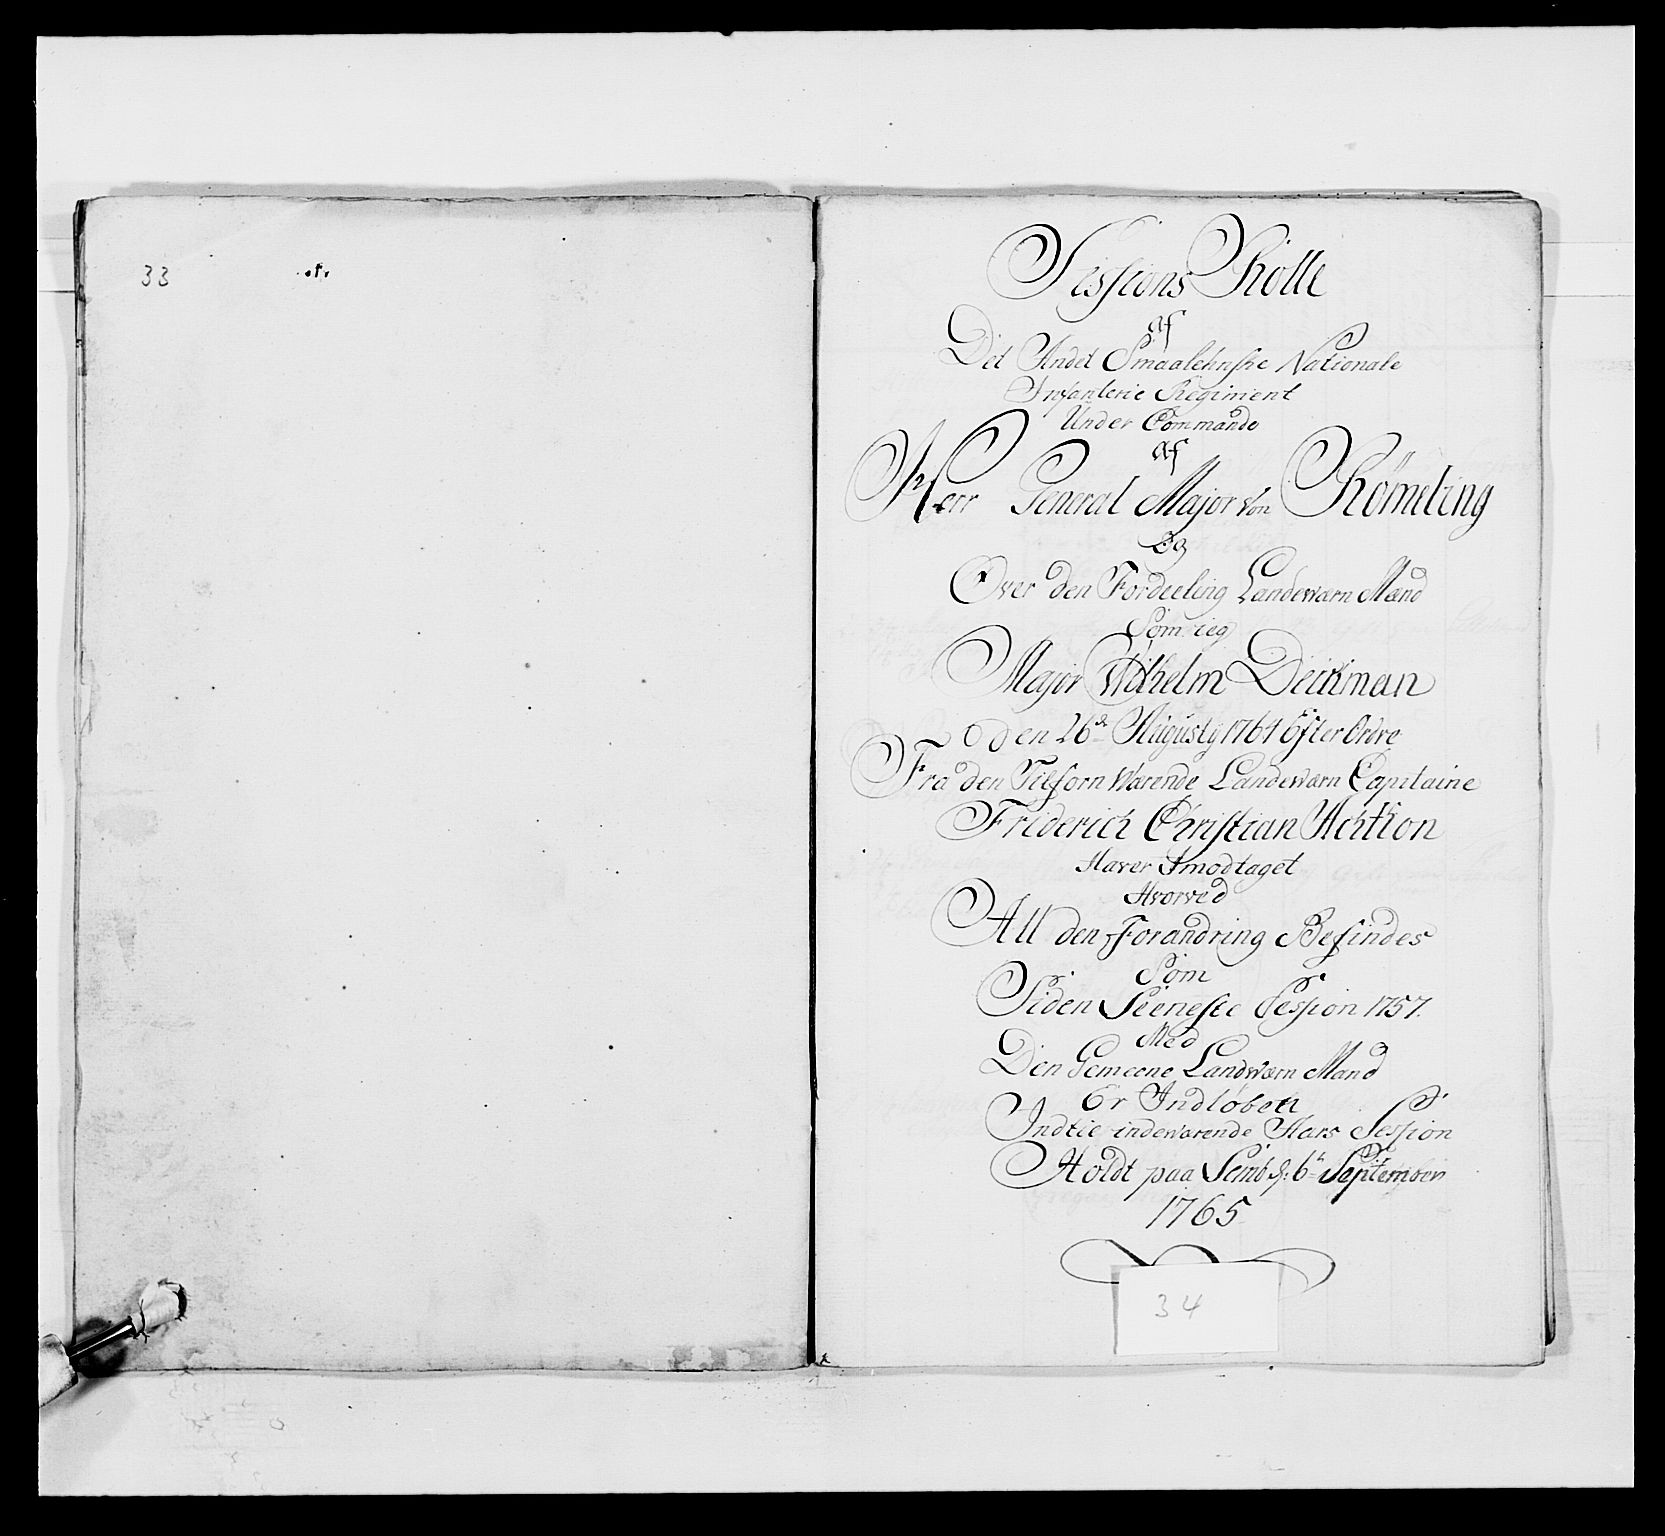 33
Sessions Rolle
af
Det Andet Smaalehnske Nationale
Infanterie Regiment
Under Commando
af
Herr General Major von Römeling
Og
Over den Fordeeling Landewærn Mænd
Som ieg
Major Wilhelm Deichman
den 26de Augusty 1764 Efter Ordre
Fra den Tilforn Wærende Landewærn Capitaine
Friderich Christian Achthon
Haver Imodtaget
Hvorved
All den Forandring Befindes
Som
Siden Seeneste Session 1757.
Med
Den Gemeene Landwærn Mand
Er Indløben
Indtie indewærende Aars Session
Holdt paa Semb d: 6te September
1765
34